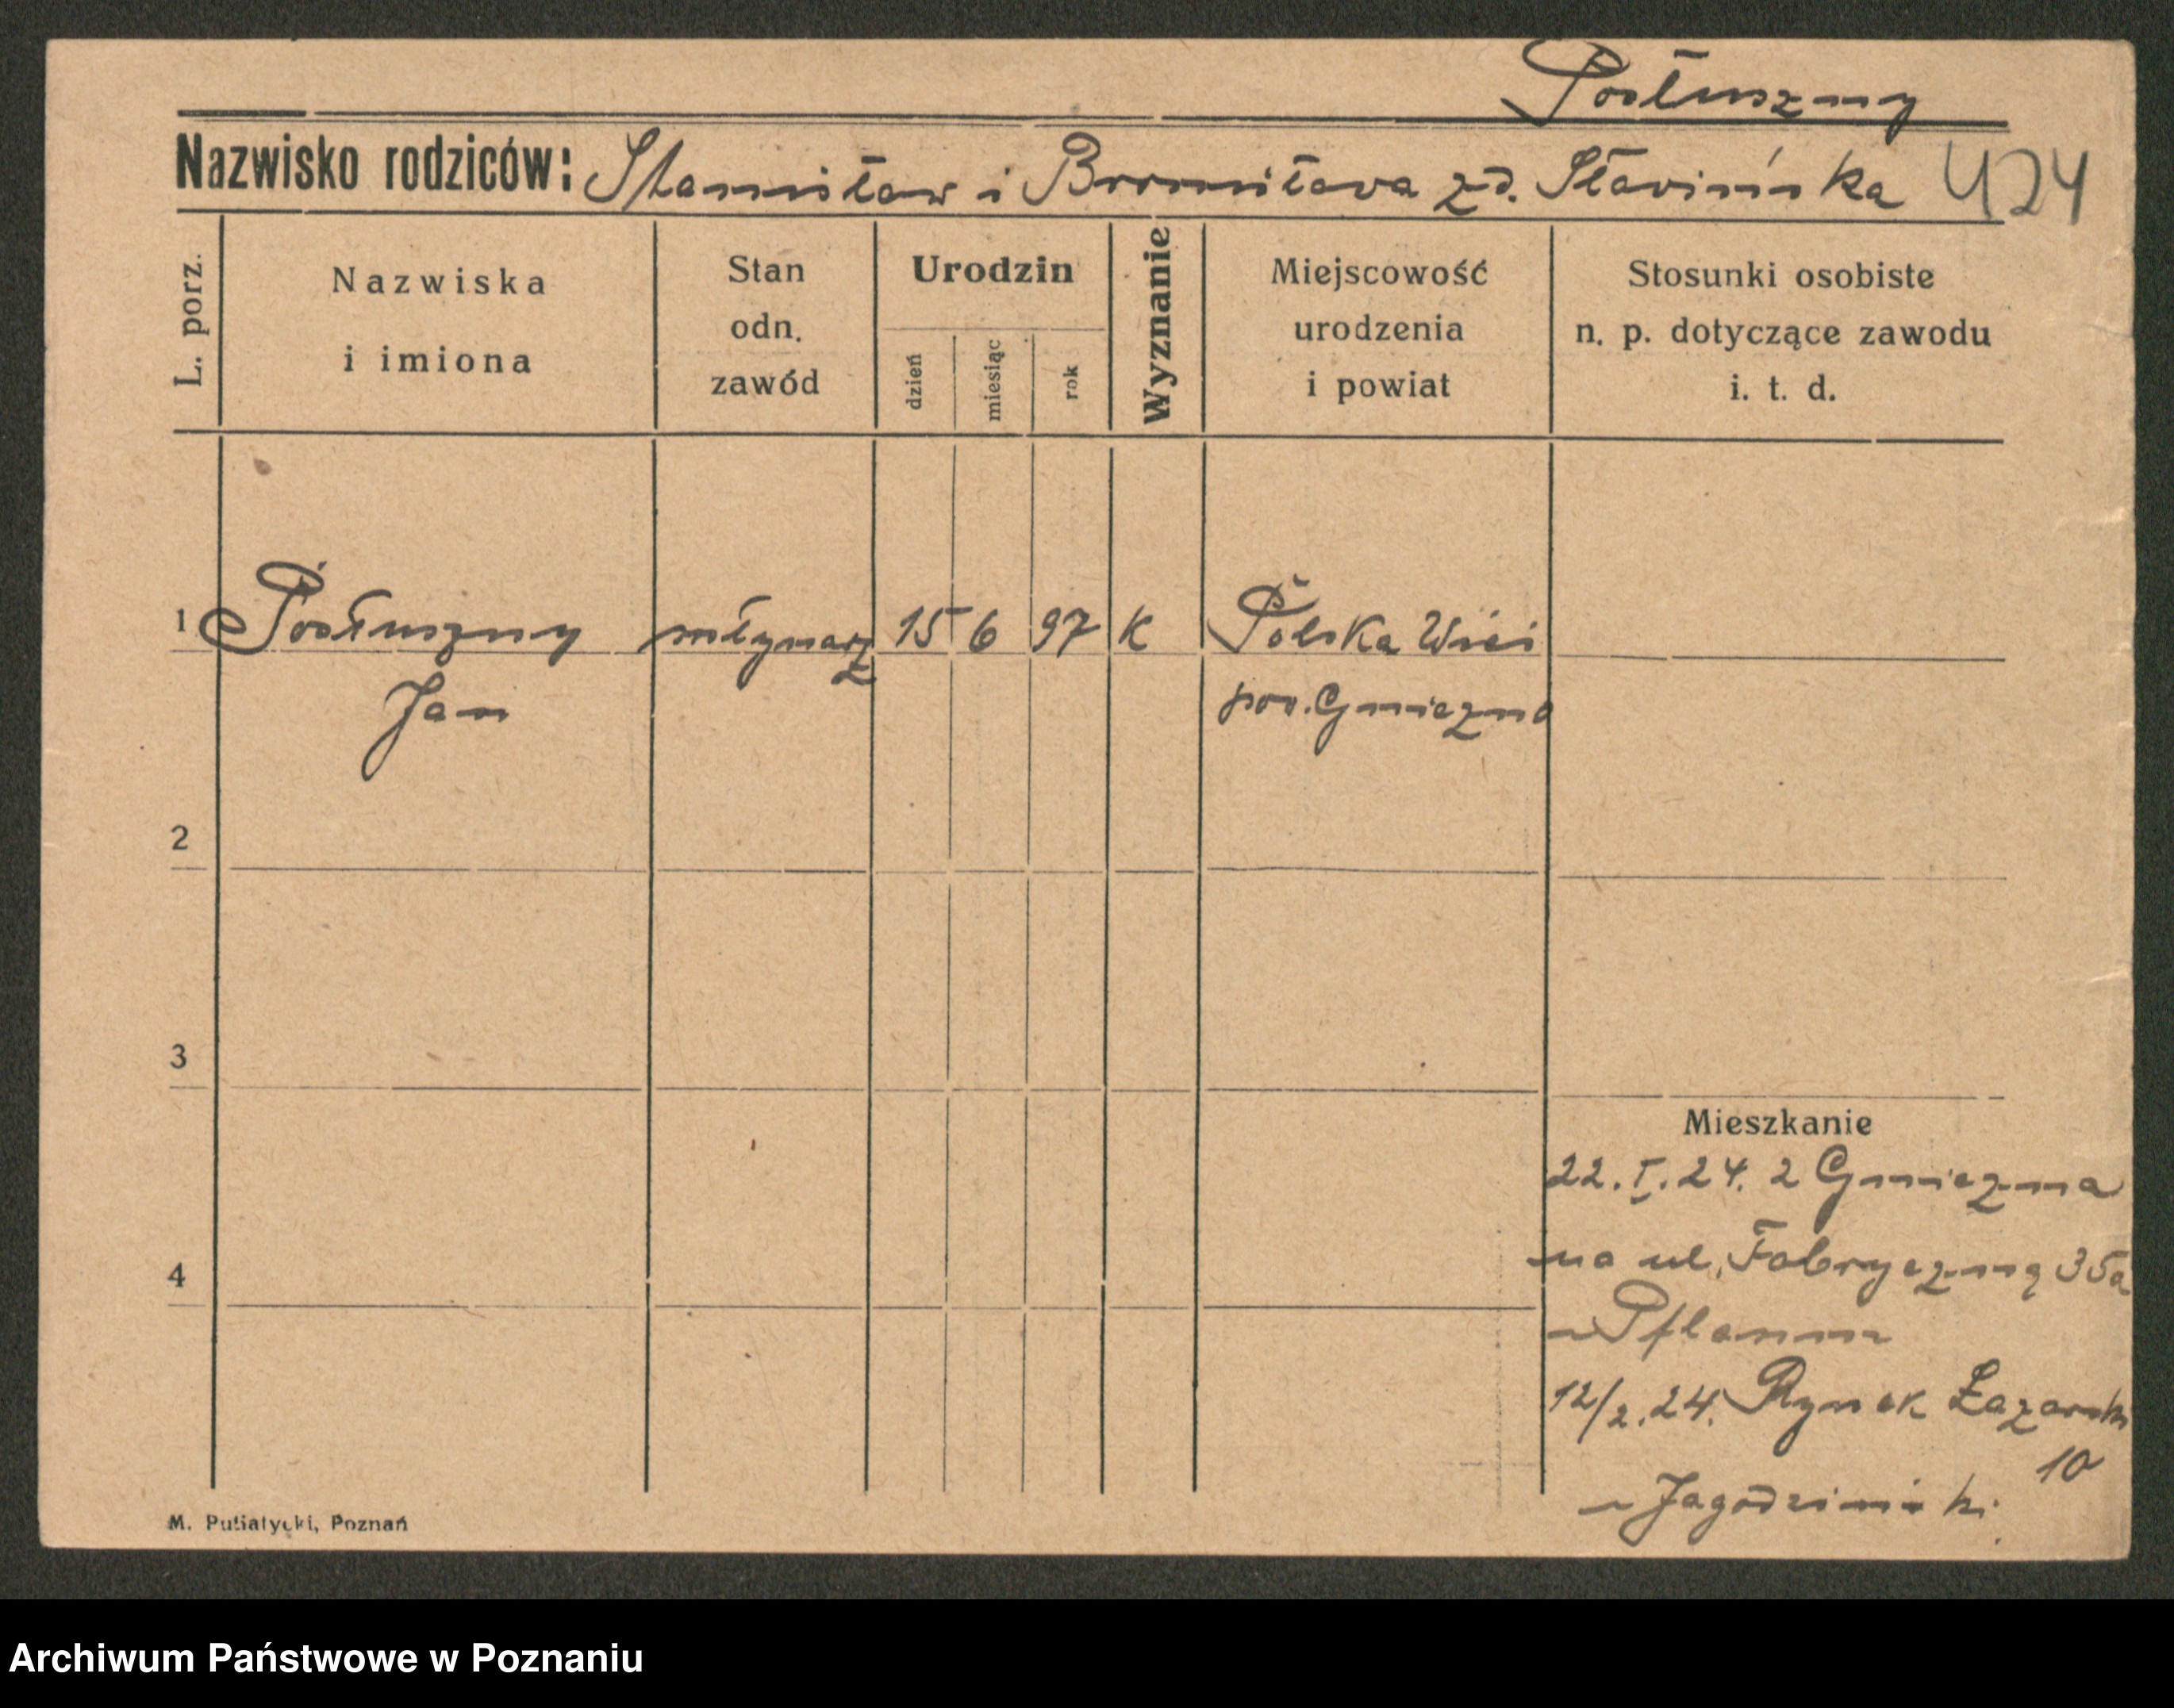 Posłuszny
Nazwisko rodziców: Stanisław i Bronisława zd. Sławińska 424
L. porz.
Nazwiska
i imiona
Stan
odn.
zawód
Urodzin
dzień
miesiąc
rok
Wyznanie
Miejscowość
urodzenia
i powiat
Stosunki osobiste
n. p. dotyczące zawodu
i. t. d.
1 Posłuszny młynarz 15 6 97 K Polska Wieś
Jan pow. Gniezno
2
3
4
Mieszkanie
22. I. 24. z Gniezna
na ul. Fabryczną 35a
u Pflaum
12/2. 24. Rynek Łazarski
10
u Jagodzinski
M. Putiatycki, Poznań
Archiwum Państwowe w Poznaniu